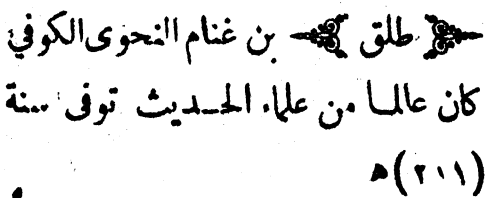 طلق بن غنام النحوى الكوفي
كان عالما من علماء الحديث توفى سنة
(٢٠١) ه